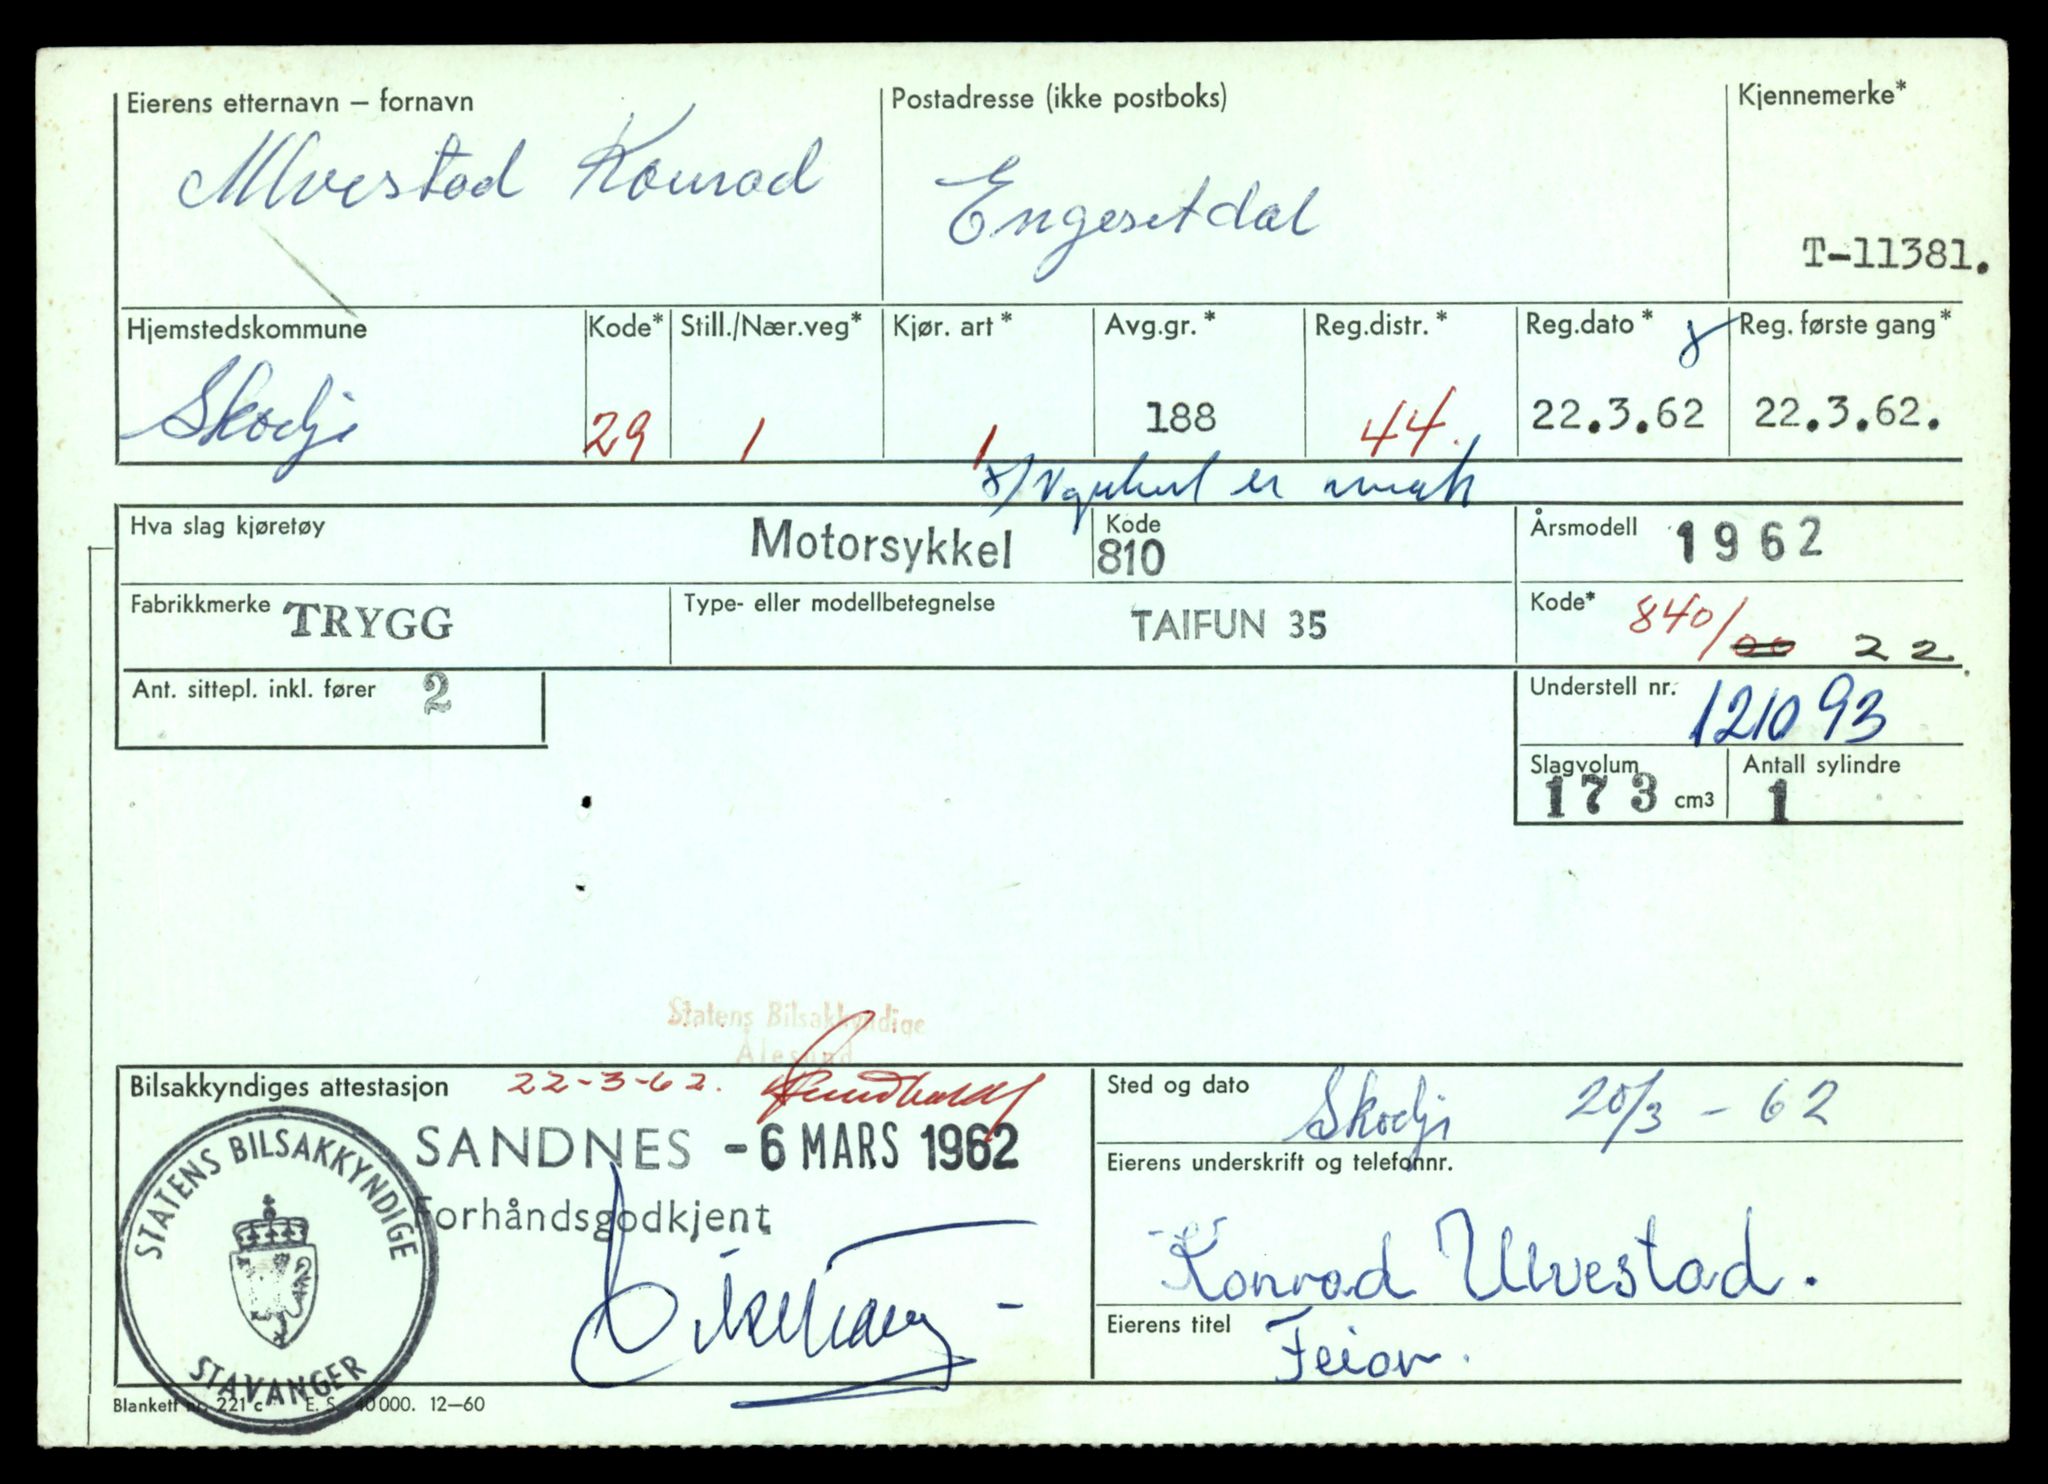 Eierens etternavn – fornavn Postadresse (ikke postboks) Kjennemerke*
Ulvestad Konrad Engesetdal T-11381.
Hjemstedskommune Kode* Still./Nær.veg* Kjør. art* Avg.gr.* Reg.distr.* Reg.dato* Reg. første gang*
Skodje 29 1 1 188 44. 22.3.62 22.3.62.
er
Hva slag kjøretøy Motorsykkel Kode 810 Årsmodell 1962
Fabrikkmerke TRYGG Type- eller modellbetegnelse TAIFUN 35 Kode* 840/00 22
Ant. sittepl. inkl. fører 2 Understell nr. 121093
Slagvolum 173 cm3 Antall sylindre 1
Statens Bilsakkyndige
Ålesund
Bilsakkyndiges attestasjon 22-3-62. Sted og dato Skodje 20/3 - 62
SANDNES -6 MARS 1962
Forhåndsgodkjent
STATENS BILSAKKYNDIGE
STAVANGER
Eierens underskrift og telefonnr.
Konrad Ulvestad.
Eierens titel Feiar.
Blankett nr. 221 c E. S. 40 000. 12—60